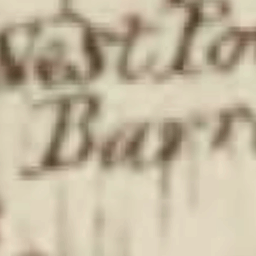 West Po
Barr